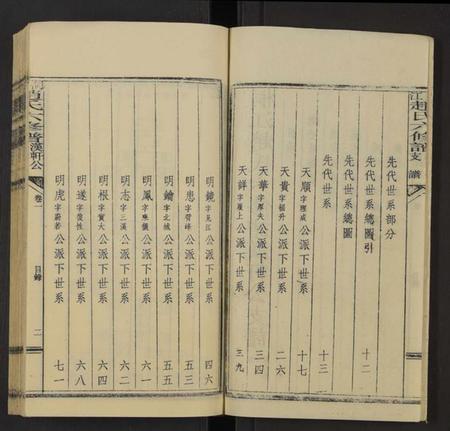 趙氏六修譜
支譜
先代世系部分
先代世系總圖引 十二
先代世系總圖 十三
先代世系
天順公派下世系 十七
天貴字福升公派下世系 二六
天華字厚夫公派下世系 三四
天詳字履上公派下世系 三九
明鏡字見江公派下世系 四六
明忠公派下世系 五三
明鑰字北城公派下世系 五五
明鳳公派下世系 六一
明志字三漢公派下世系 六二
明根字質大公派下世系 六四
明遂字復性公派下世系 六八
明虎字蔚若公派下世系 七一
趙氏六修譜漢軒公
卷一
目錄
二